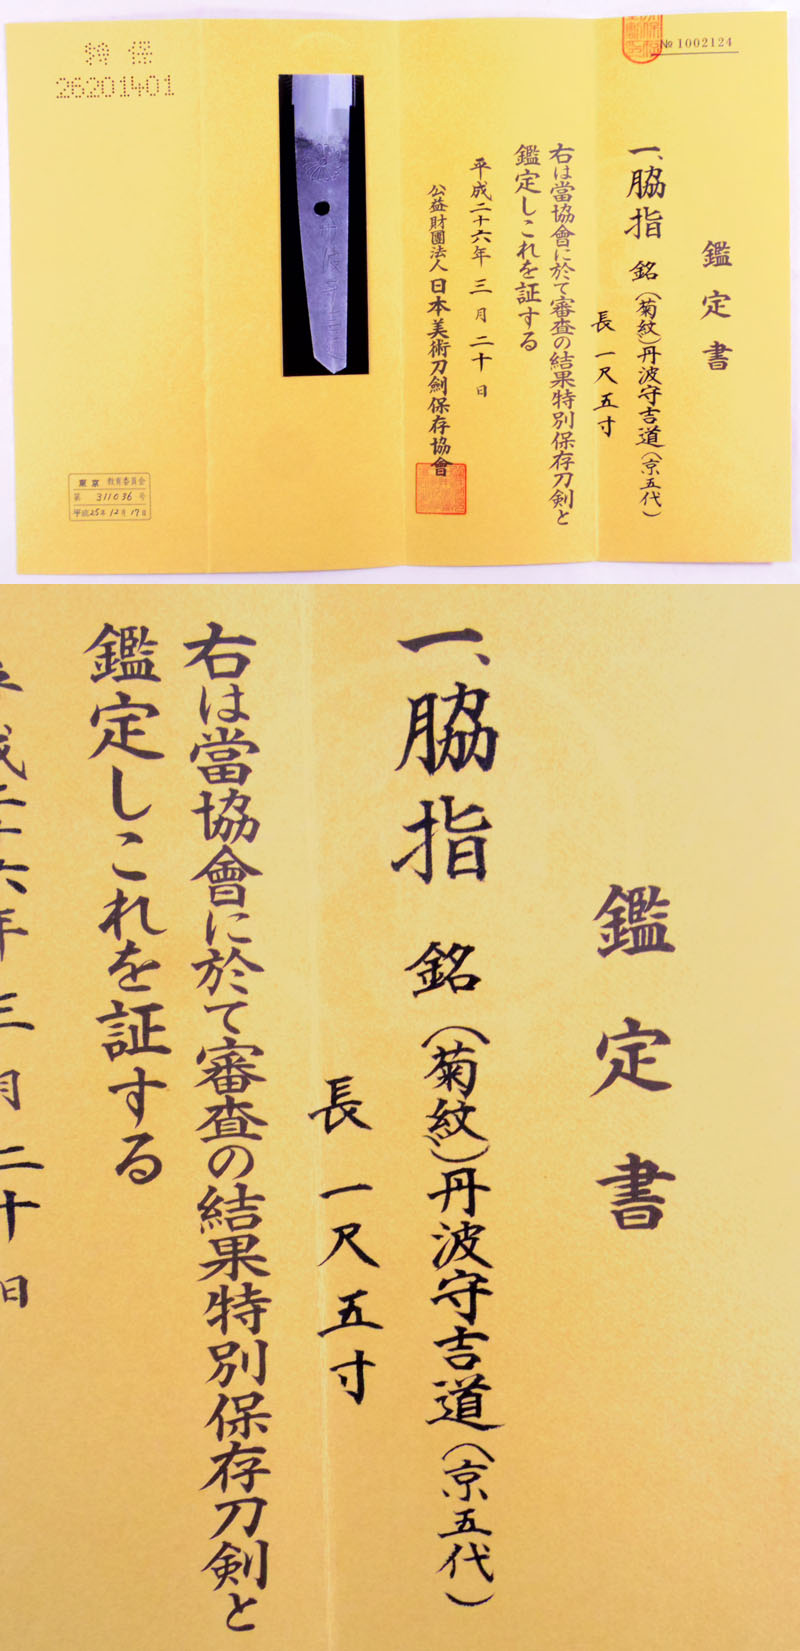 № 1002124
鑑定書
一、脇指 銘(菊紋)丹波守吉道(京五代)
長 一尺五寸
右は當協會に於て審査の結果特別保存刀剣と
鑑定しこれを証する
平成二十六年 三月 二十日
公益財團法人 日本美術刀劍保存協會
特保
26201401
東京 教育委員会
第 311036 号
平成25年12月17日
鑑定書
一、脇指 銘(菊紋)丹波守吉道(京五代)
長 一尺五寸
右は當協會に於て審査の結果特別保存刀剣と
鑑定しこれを証する
成二十六年 三月 二十日